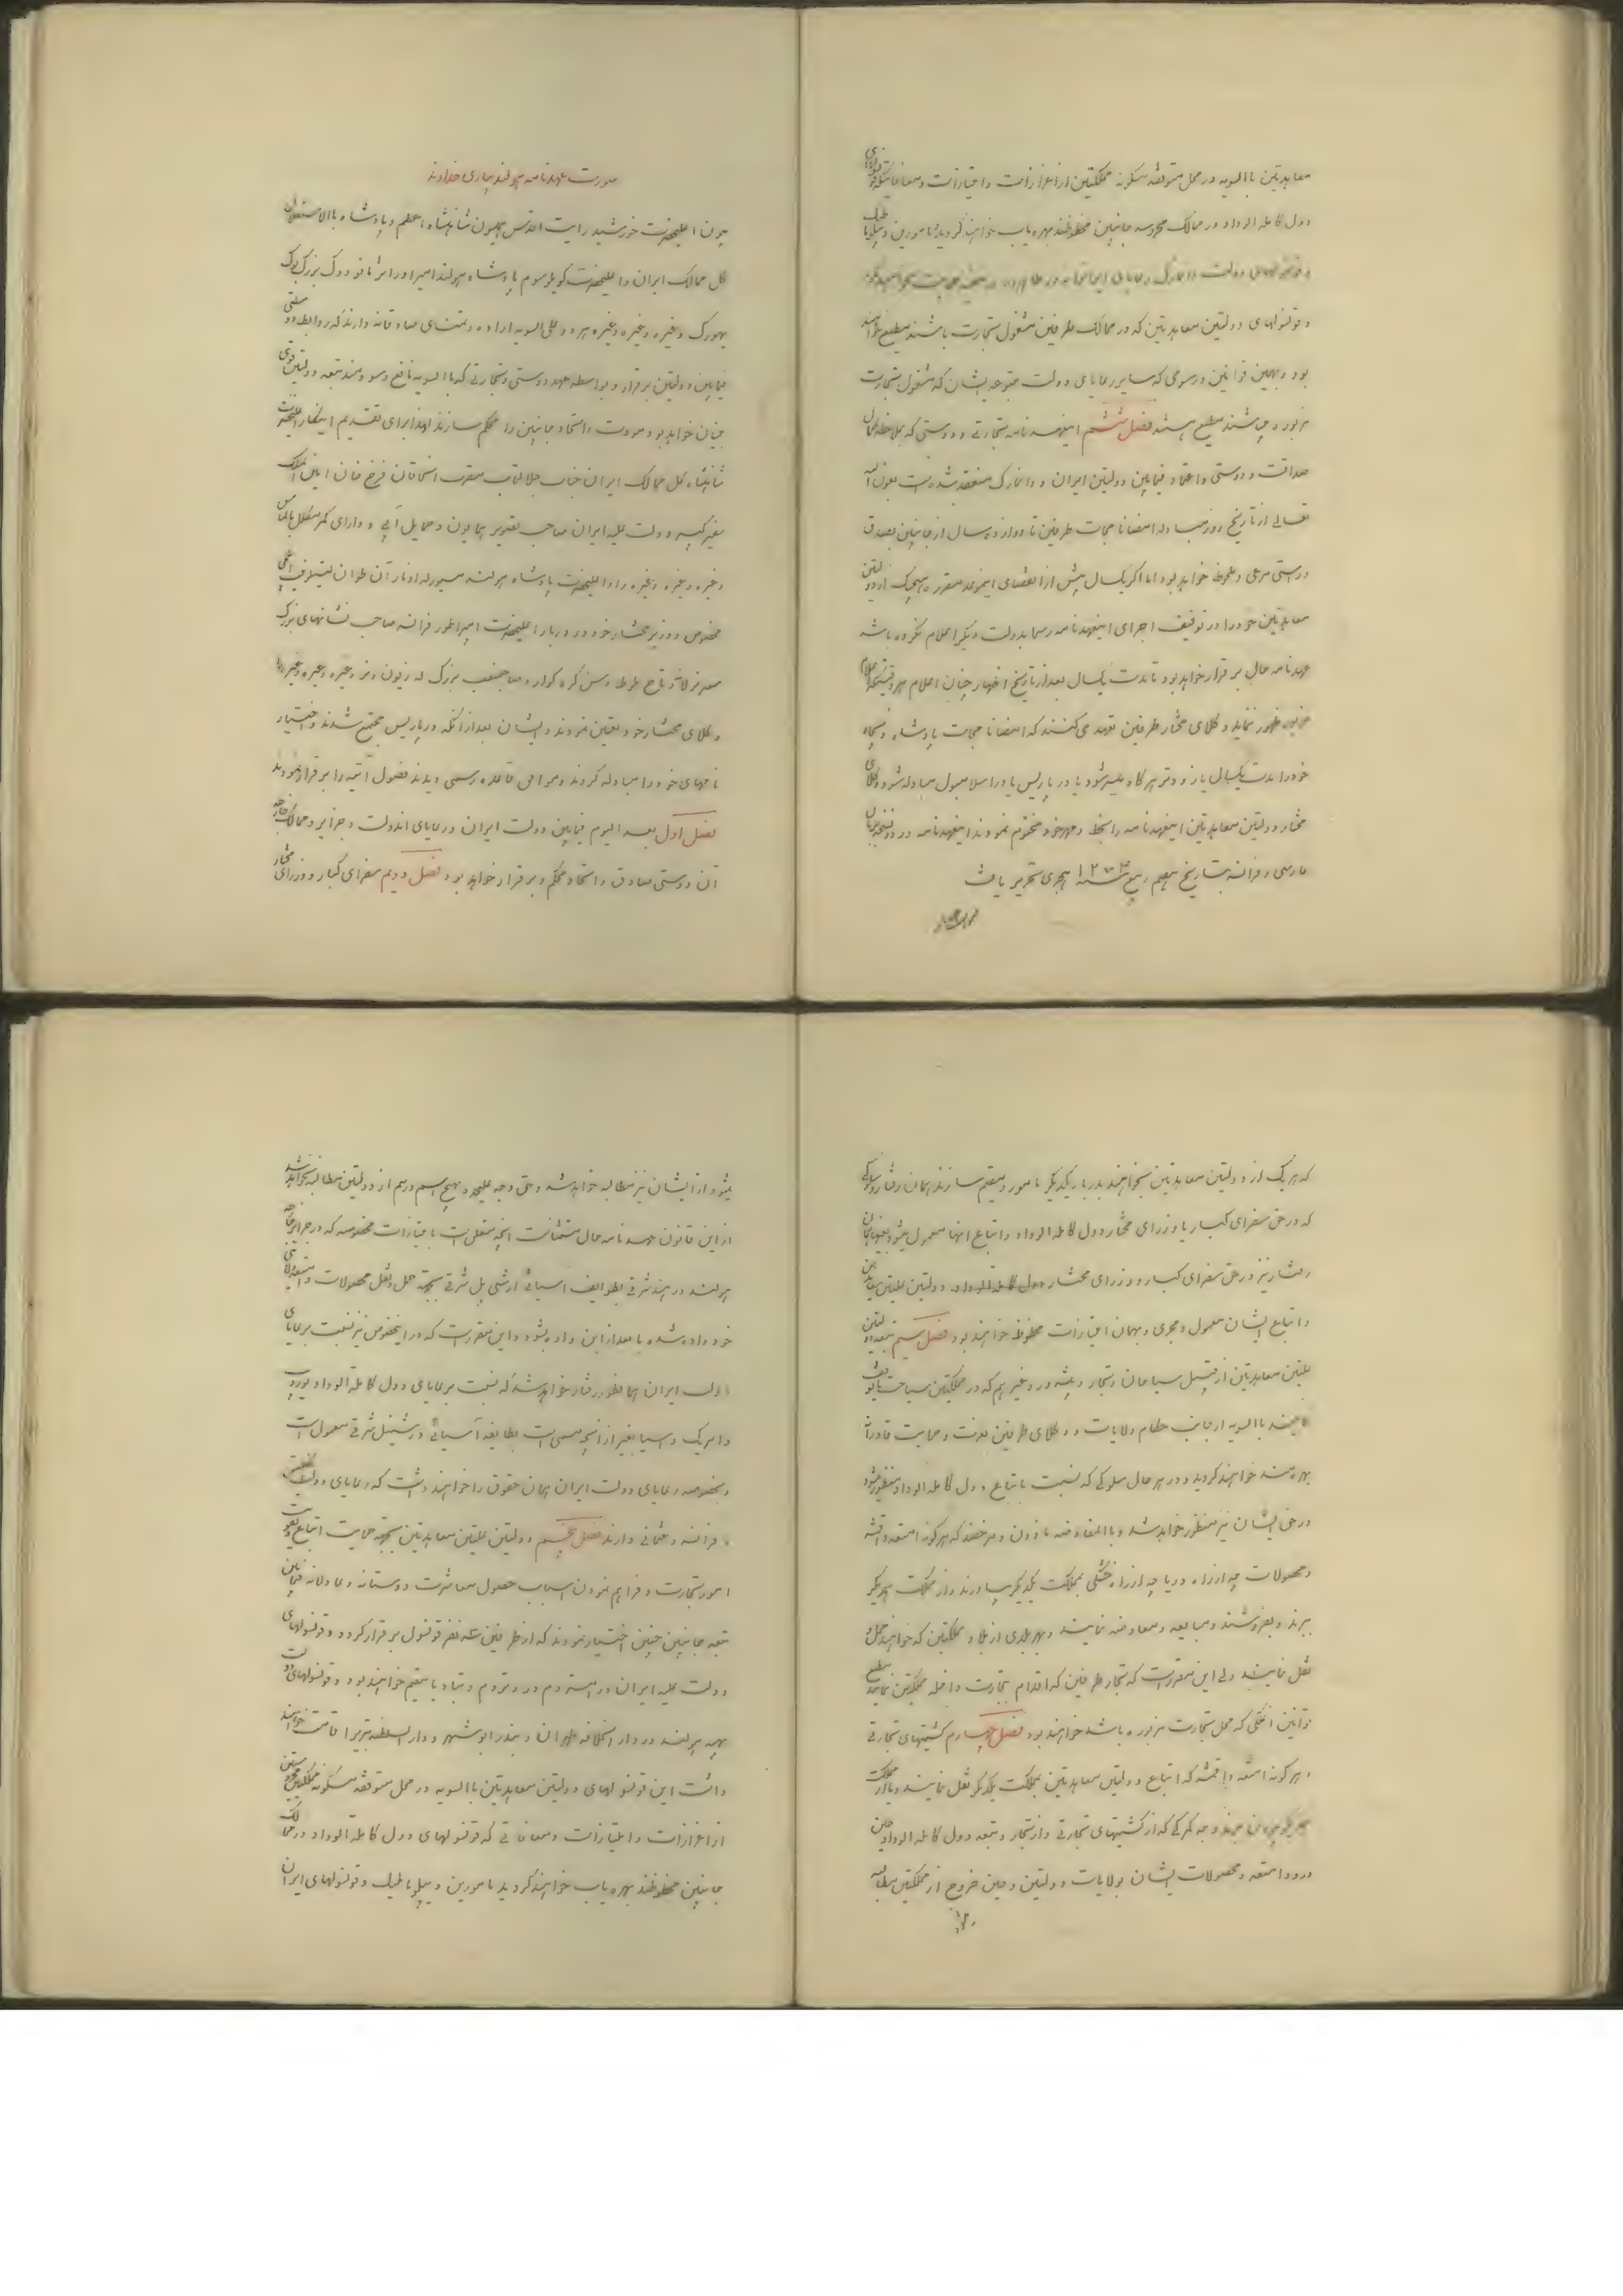 معاهدتین باالسویه در محل متوقفه و مسکونه مملکتین از اعزازات و امتیازات و معافاتیکه قونسولهای
دول کامله الوداد در ممالک محروسه جانبین محظوظند بهره یاب خواهند گردید مامورین دیپلوماطیک
و قونسولهای دولت دانمارک رعایای ایرانی را نه در ظاهر و نه در خفیه حمایت نخواهند کرد
و قونسولهای دولتین معاهدتین که در ممالک طرفین مشغول تجارت باشند مطیع خواهند
بود و بهمین قوانین و رسومی که سایر رعایای دولت متبوعه ایشان که مشغول تجارت
مزبوره میباشند مطیع هستند فصل ششم این عهدنامه تجارتی و دوستی که بملاحظه کمال
صداقت و دوستی و اعتماد فیمابین دولتین ایران و دانمارک منعقد شده است بعون الله
تعالی از تاریخ روز مبادله امضا نامجات طرفین تا دوازده سال از جانبین بصدق
و رستی مرعی و ملحوظ خواهد بود اما اگر یکسال پیش از انقضای اینموعد مقرره هیچیک از دولتین
معاهدتین خود را در توقیف اجرای این عهدنامه رسما بدولت دیگر اعلام نکرده باشد
عهدنامه حال برقرار خواهد بود تا مدت یکسال بعد از تاریخ اظهار چنان اعلام هر وقتیکه اعلام
مزبور ظهور نماید وکلای مختار طرفین تعهد می کنند که امضا نامجات پادشاه و پنجاه
خود را بمدت یکسال یا زودتر هرگاه میسر شود یا در پاریس یا در اسلامبول مبادله شود وکلای
مختار دولتین معاهدتین این عهدنامه را بخط و مهر خود مختوم نمودند این عهدنامه در دو نسخه بزبان
فارسی و فرانسه بتاریخ هفتم ربیع هجری تحریر یافت
صورت عهدنامه
چون اعلیحضرت خورشید رایت اقدس همایون شاهنشاه اعظم و پادشاه باالاستقلال
کل ممالک ایران و اعلیحضرت کویلوم سیوم پادشاه هولند امیر اورانژ نانو دوک بزرگ لوک
بهورک و غیره و غیره و غیره هر دو علی السویه اراده و تمنای صادقانه دارند که روابط دوستی
فیمابین دولتین برقرار و بواسطه عهد دوستی و تجارتی که باالسویه نافع و سودمند تبعه دولتین قوی
بنیان خواهد بود مودت و اتحاد جانبین را محکم سازند لهذا برای تقدیم اینکار اعلیحضرت
شاهنشاه کل ممالک ایران جناب جلالتمآب مقرب الخاقان فرخ خان امین الملک
سفیر کبیر دولت علیه ایران صاحب تصویر همایون و حمایل آبی و دارای کمر مکلل بالماس
و غیره و غیره و غیره را و اعلیحضرت پادشاه هولند
مخصوص و وزیر مختار خود در دربار اعلیحضرت امپراطور فرانسه صاحب نشانهای بزرگ
و غیره و غیره و غیره را
وکلای مختار خود تعیین نمودند و ایشان بعد از آنکه در پاریس مجتمع شدند و اختیار
نامهای خود را مبادله کردند و موافق قاعده رسمی دیدند فصول آتیه را برقرار نمودند
فصل اول بعد الیوم فیمابین دولت ایران و رعایای اندولت و جزایر و ممالک خارجه
آن دوستی صادق و اتحاد محکم و برقرار خواهد بود فصل دویم سفرای کبار و وزرای مختار
که هر یک از دولتین معاهدتین بخواهند بدربار یکدیگر مامور و مقیم سازند همان رفتار و سلوکی
که در حق سفرای کبار یا وزرای مختار دول کامله الوداد و اتباع آنها معمول میشود بعینه همان
رفتار نیز در حق سفرای کبار و وزرای مختار دولتین علیتین معاهدتین
و اتباع ایشان معمول و مجری و بهمان امتیازات محظوظ خواهند بود فصل سیم تبعه دولتین
علیتین معاهدتین از قبیل سیاحان و تجار و پیشه ور و غیرهم که در مملکتین سیاحت یا توقف
نمایند باالسویه از جانب حکام ولایات و وکلای طرفین بعزت و حمایت قادرانه
بهره مند خواهند گردید و در هر حال سلوکی که نسبت باتباع دول کامله الوداد منظور میشود
در حق ایشان نیز منظور خواهد شد و باالمعاوضه ماذون و مرخصند که هر گونه امتعه و اقمشه
و محصولات چه از راه دریا چه از راه خشکی بمملکت یکدیگر بیاورند و از مملکت همدیگر
ببرند و بفروشند و مبایعه و معاوضه نمایند و بهر بلدی از بلاد مملکتین که خواهند حمل و
نقل نمایند ولی این مقررست که تجار طرفین که اقدام بتجارت داخله مملکتین نمایند مطیع
قوانین آنملکی که محل تجارت مزبوره باشد خواهند بود فصل چهارم کشتیهای تجارتی
و هر گونه امتعه و اقمشه که اتباع دولتین معاهدتین بمملکت یکدیگر نقل نمایند و یا از مملکت
وجه گمرکی که از کشتیهای تجارتی و از تجار و تبعه دول کامله الوداد حین
ورود امتعه و محصولات ایشان بولایات دولتین و حین خروج از مملکتین مطالبه
میشود از ایشان نیز مطالبه خواهد شد و حق و وجه علیحده بهیچ اسم و رسم از دولتین مطالبه نخواهد شد
از این قانون عهدنامه حال مستثناست آنچه متعلق است بامتیازات مخصوصه که در جزایر خارجه
هولند در هند شرقی بطوایف آسیائی ارشی پل شرقی بجهة حمل و نقل محصولات و امتعه ولایتی
خود داده شده یا بعد از این داده بشود و این مقررست که در اینخصوص نیز نسبت برعایای
دولت ایران همانطور رفتار خواهد شد که نسبت برعایای دول کامله الوداد یوروپ
و امریک و آسیا بغیر از آنچه مسمی است بطایفه آسیائی در ارشیپل شرقی معمول است
و بخصوصه رعایای دولت ایران همان حقوق را خواهند داشت که رعایای دولت انگلیس
و فرانسه و عثمانی دارند فصل پنجم دولتین علیتین معاهدتین بجهة حمایت اتباع و تقویت
امور تجارت و فراهم نمودن اسباب حصول معاشرت دوستانه و عادلانه فیمابین
تبعه جانبین چنین اختیار نمودند که از طرفین سه نفر قونسول برقرار گردد و قونسولهای
دولت علیه ایران در امستردم و روتردم و بتاویا مقیم خواهند بود و قونسولهای دولت
بهیه هولند در دارالخلافه طهران و بندر ابوشهر و دارالسلطنه تبریز اقامت خواهند
داشت این قونسولهای دولتین معاهدتین باالسویه در محل متوقفه و مسکونه مملکتین محروستین
از اعزازات و امتیازات و معافاتی که قونسولهای دول کامله الوداد در ممالک
جانبین محظوظند بهره یاب خواهند گردید مامورین دیپلوماطیک و قونسولهای ایران